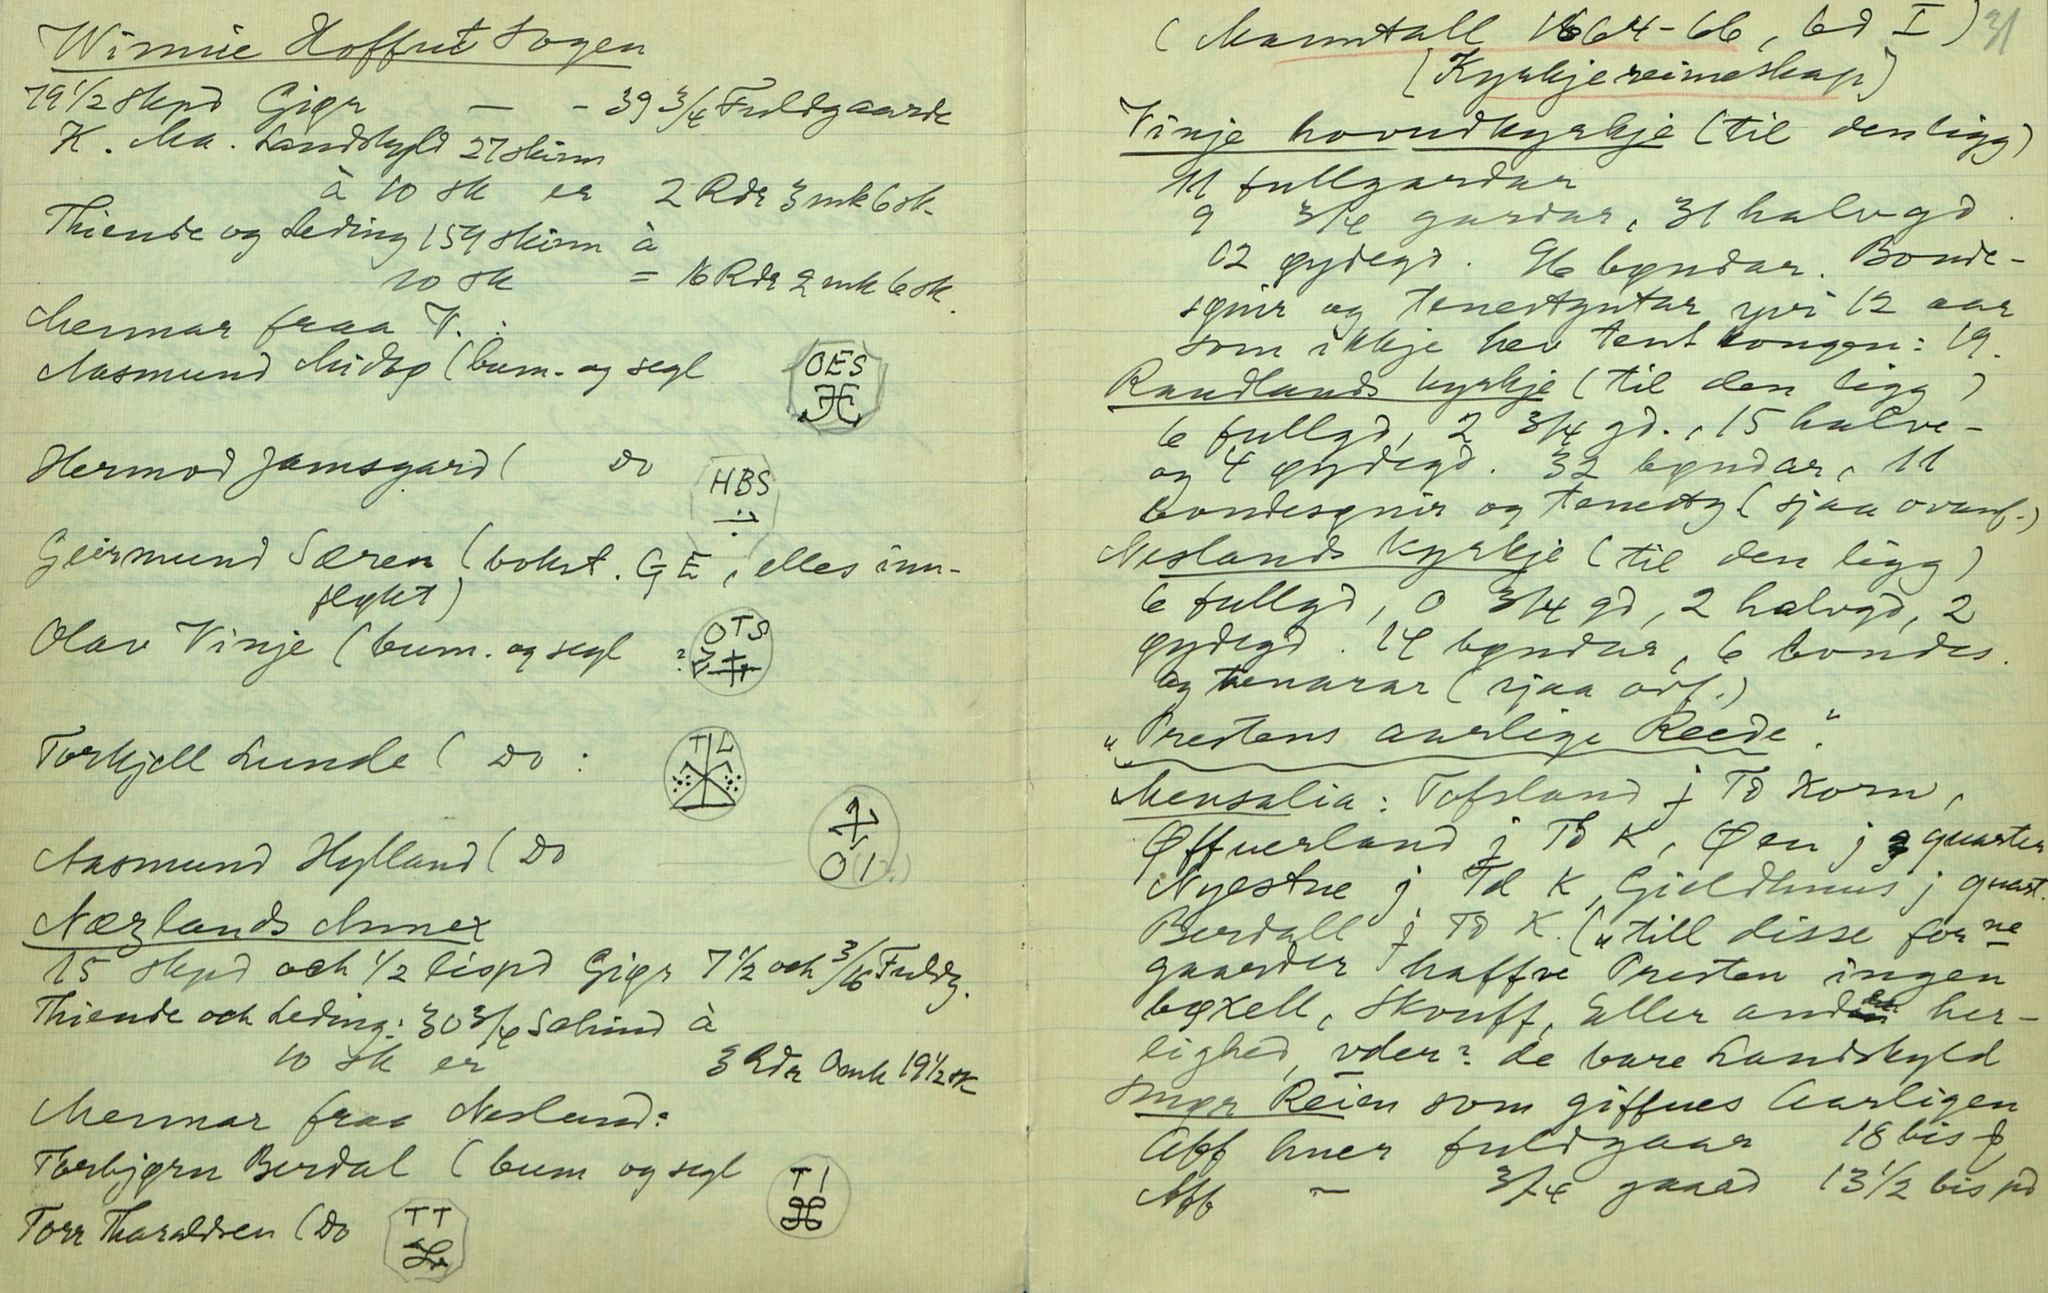 Winnie Hoffuet Sogen
79 1/2 Skpd Gior — - 39 3/4 Fuldgaarde
K. Ma. Landskyld 27 skinn
à 10 sk er 2 Rdr 3 mk 6 sk.
Thiende og Leding 159 skinn à
10 sk = 16 Rdr 2 mk 6 sk.
Mennar fraa V. :
Aasmund Midbø (bum. og segl
OES
Hermod Jamsgard ( Do
HBS
Geirmund Særen (bokst. GE, elles inn-
flykt)
Olav Vinje (bum. og segl ?
OTS
Torkjell Lunde ( Do :
TL
Aasmund Hylland ( Do
OI
Næzlands Annex
15 Skpd och 1/2 lispd Giør 7 1/2 och 3/16 Fuldg.
Thiende och Leding: 30 3/4 Schind à
10 sk er 3 Rdr 0 mk 19 1/2 sk
Mennar fraa Nesland:
Thorbjørn Berdal (bum og segl
TI
Torr Tharaldsen (Do
TT
(Manntall 1664-66, bd I) 31
[Kyrkjereineskap]
Vinje hovudkyrkje (til den ligg)
11 fullgardar
9 3/4 gardar, 31 halvgd.
12 øydegd. 96 bøndar. Bonde-
søner og tenestgutar yvi 12 aar
som ikkje hev tent kongen: 19.
Raudlands kyrkje (til den ligg)
6 fullgd, 2 3/4 gd., 15 halve-
og 4 øydegd. 32 bøndar, 11
bondesønir og tenestg (sjaa ovanf.)
Neslands kyrkje (til den ligg)
6 fullgd, 0 3/4 gd, 2 halvgd, 2
øydegd. 14 bøndar, 6 bondes.
og tenarar (sjaa ovf.)
„Prestens aarlige Reede".
Mensalia: Tofsland j Td Korn,
Øffuerland j Td K, Øen j quarter
Nyestue j Td K, Gieldhuus j quart.
Berdall j Td K. („till disse forne
gaarder haffve Presten ingen
bøxell, Skouff, Eller anden her-
lighed, vden? de bare Landskyld
Smør Reien som giffues Aarligen
Aff huer fuldgaar 18 bis
Aff — 3/4 gaard 13 1/2 bis pd